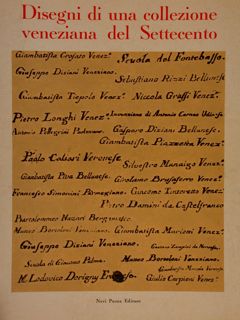 Disegni di una collezione
veneziana del Settecento
Giambatista Crosato Venez.º
Scuola del Fontebasso.
Giuseppe Diziani Veneziano.
Sebastiano Rizzi Bellunese
Giambatista Tiepolo Venez.º
Niccola Grassi Venez.º
Pietro Longhi Venez.º
Invenzione di Antonio
Antonio Pellegrini Padovano.
Gasparo Diziani Bellunese.
Giambatista Piazzetta Venez.º
Paolo Caliari Veronese
Silvestro Manaigo Venez.º
Giambatista Pita Bellunese.
Girolamo Brusaferro Venez.º
Francesco Simonini Parmegiano.
Giacomo Venez.º
Pietro Damini da Castelfranco
Bartolommeo Nazari Bergamasco.
Mateo Bortoloni Veneziano.
Giambatista Marioni Venez.º
Giuseppe Diziani Veneziano
Scuola di Giacomo Palma.
Mateo Bortoloni Veneziano.
M. Lodovico Dorigny
Giulio Carpioni Venez.º
Neri Pozza Editore